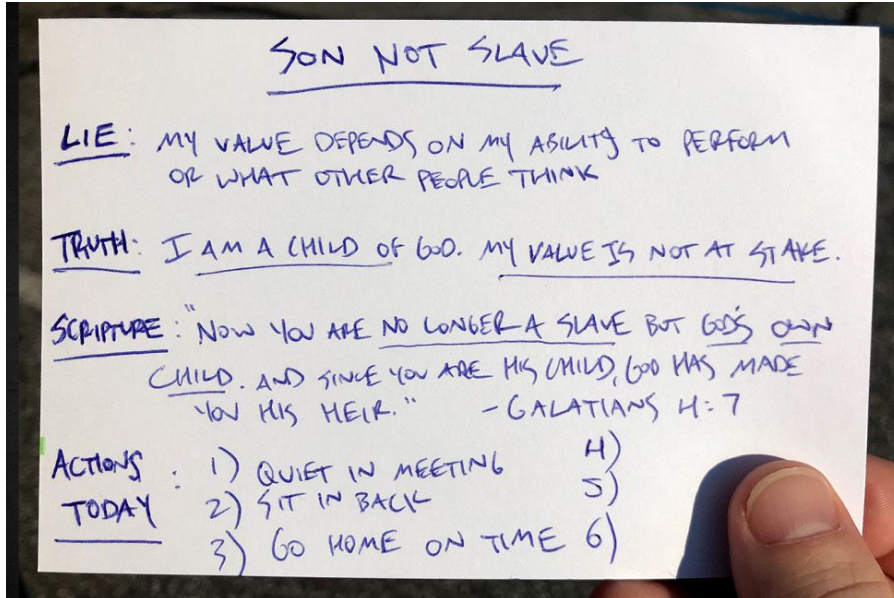 SON NOT SLAVE
LIE: MY VALUE DEPENDS ON MY ABILITY TO PERFORM
OR WHAT OTHER PEOPLE THINK
TRUTH: I AM A CHILD OF GOD. MY VALUE IS NOT AT STAKE.
SCRIPTURE: "NOW YOU ARE NO LONGER A SLAVE BUT GOD'S OWN
CHILD. AND SINCE YOU ARE HIS CHILD, GOD HAS MADE
YOU HIS HEIR." - GALATIANS 4:7
ACTIONS TODAY: 1) QUIET IN MEETING
2) SIT IN BACK
3) GO HOME ON TIME
4)
5)
6)